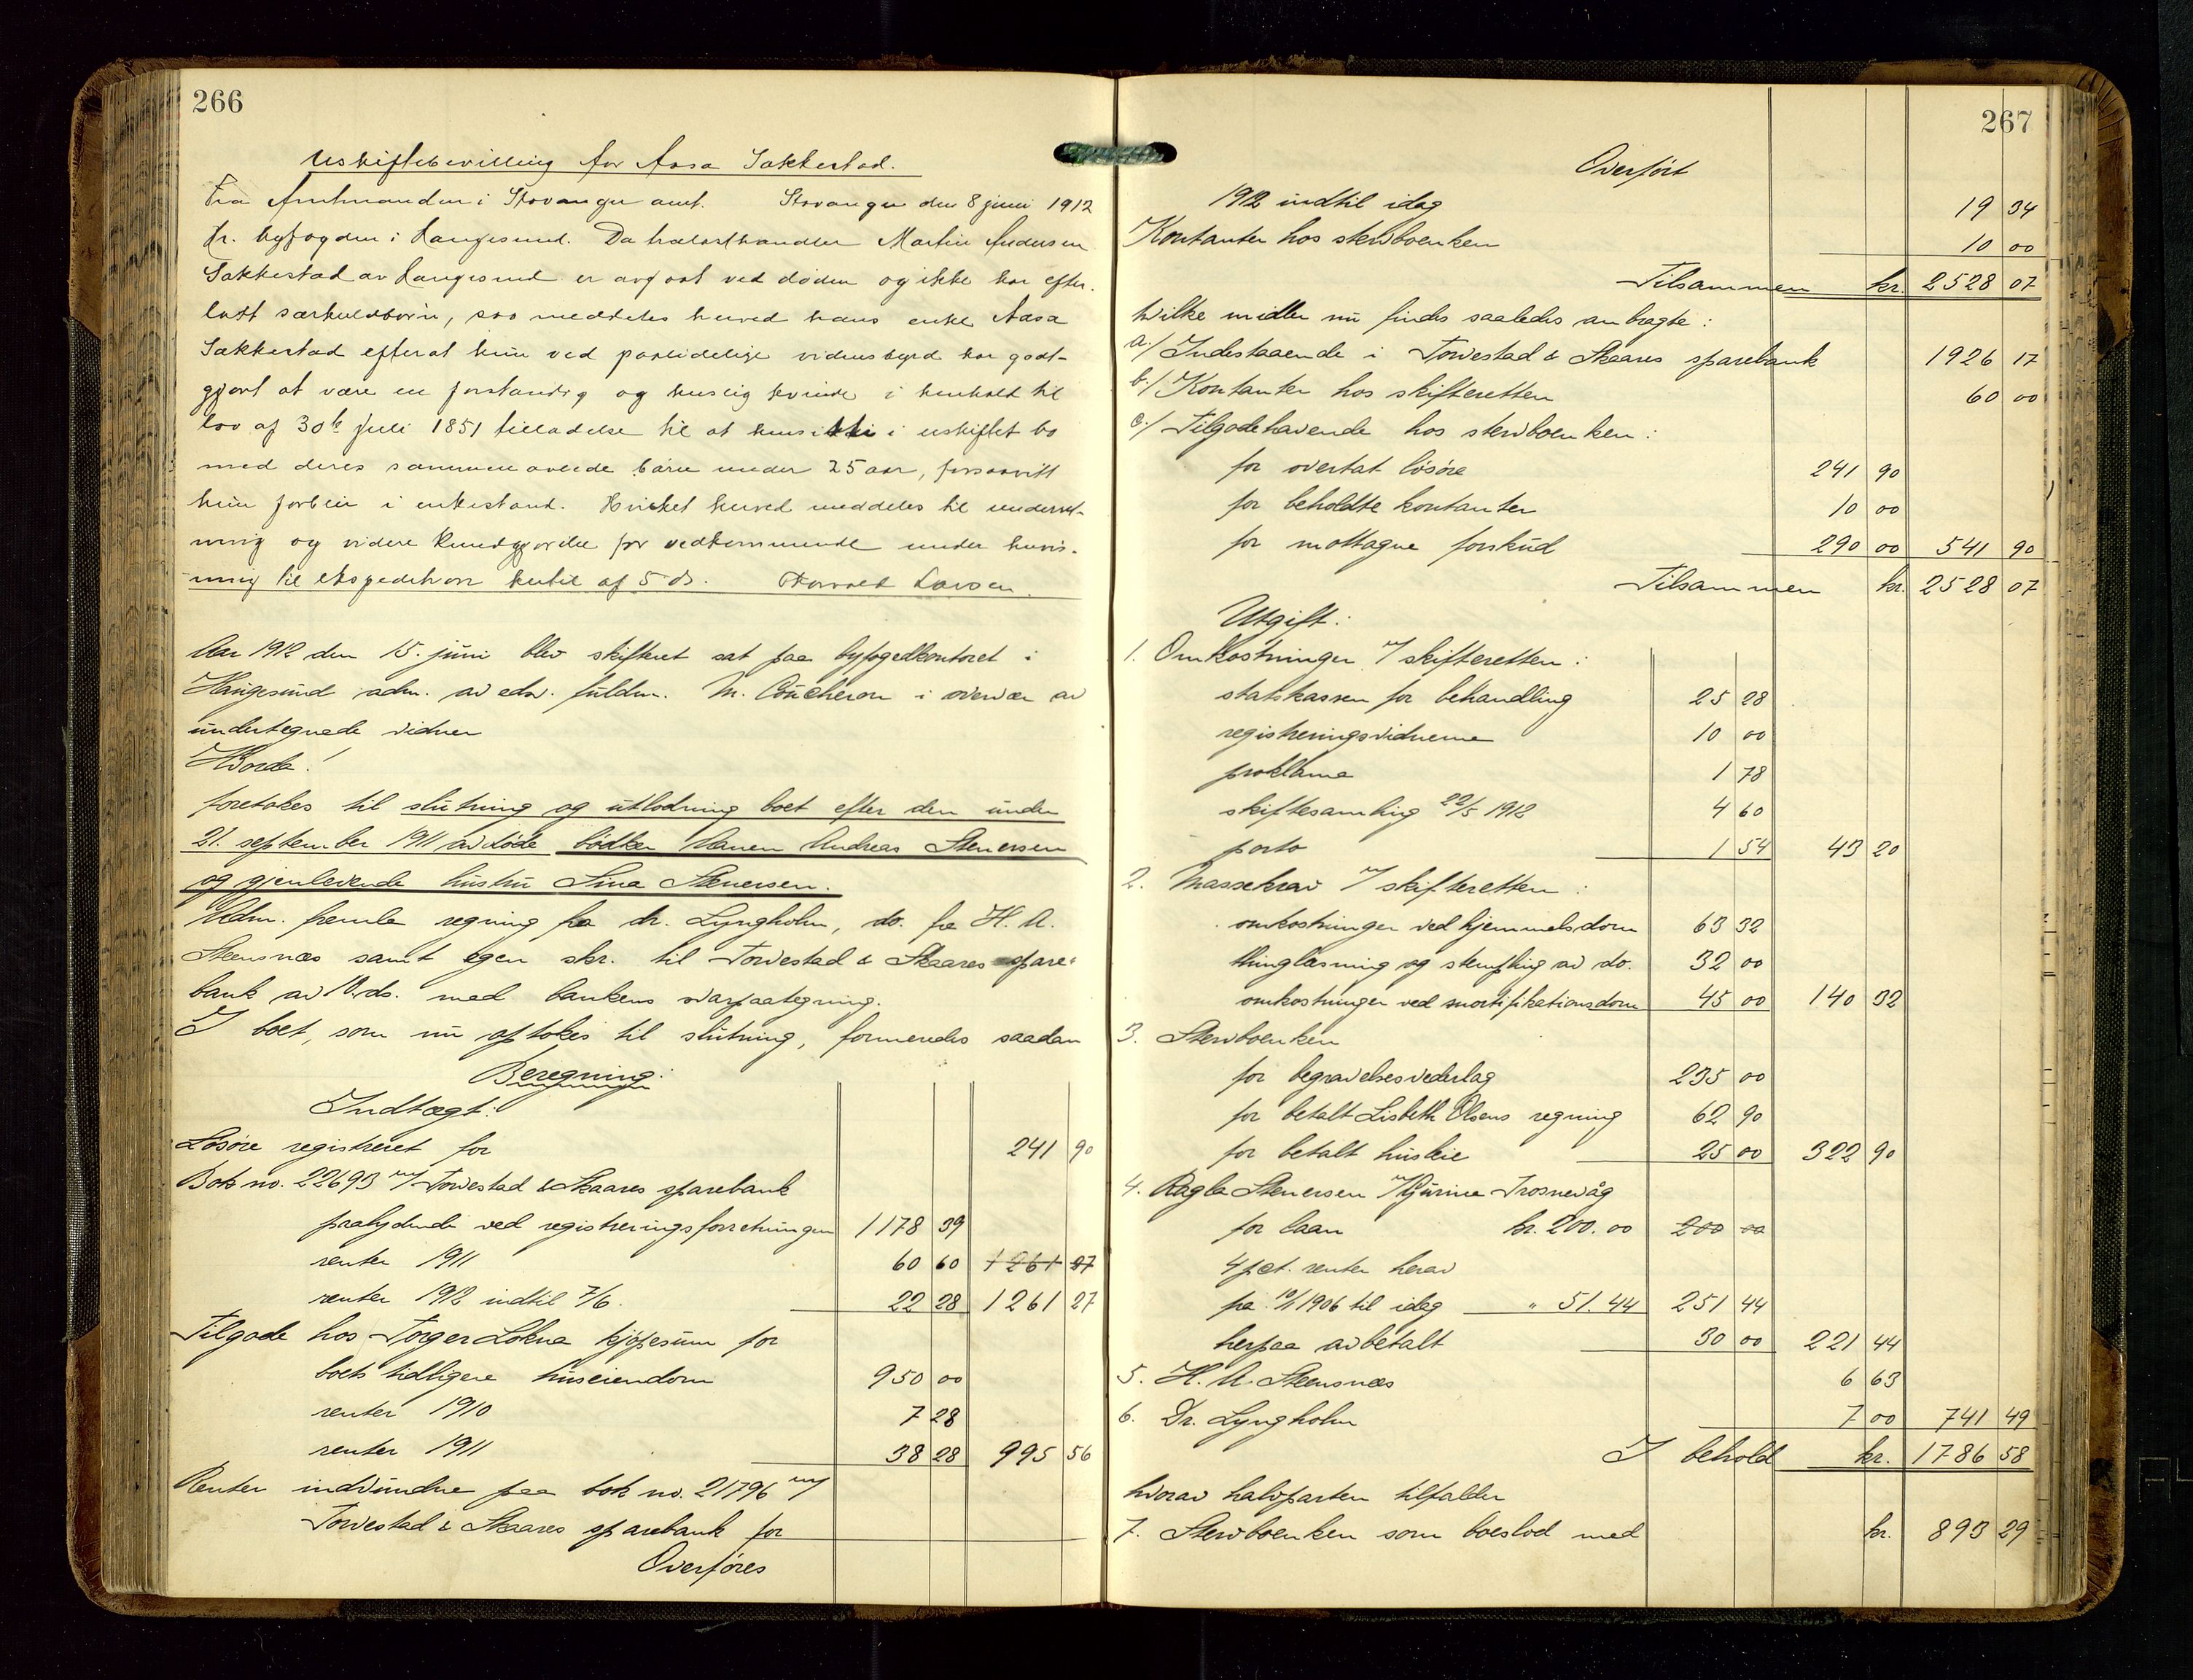 266
Uskiftebevilling for Aasa Sakkestad.
Fra Amtmanden i Stavanger amt. Stavanger den 8 juni 1912
Hr. byfogden i Haugesund. Da trælasthandler Martin Andersen
Sakkestad av Haugesund er avgaat ved døden og ikke har efter-
latt særkuldbørn, saa meddeles herved hans enke Aasa
Sakkestad efterat hun ved paalidelige vidnesbyrd har godt-
gjort at være en forstandig og huslig kvinde i henhold til
lov af 30te Juli 1851 tilladelse til at hensitte i uskiftet bo
med deres sammen avlede børn under 25 aar, forsaavitt
hun forblir i enkestand. Hvilket herved meddeles til underret-
ning og videre kundgjørelse for vedkommende under henvis-
ning til ekspedition hertil af 5 ds. Thorvald Larsen.
Aar 1912 den 15. juni blev skifteret sat paa byfogedkontoret i
Haugesund adm. av edsv. fuldm. M. Coucheron i overvær av
undertegnede vidner
Hvorda!
foretokes til slutning og utlodning boet efter den under
21. september 1911 avdøde bødker Maurn Andreas Stenersen
og gjenlevende hustru Sina Stenersen.
Adm. fremla regning fra dr. Lyngholm, do. fra H. A.
Steensnæs samt egen skr. til Torvestad & Skaares spare-
bank av 10. ds. med bankens svarpaategning.
I boet, som nu optokes til slutning, formeredes saadan
Beregning:
Indtægt:
Løsøre registreret for 241 90
Bok no. 22693 m/ Torvestad & Skaares sparebank
paalydende ved registreringsforretningen 1178 39
renter 1911 60 60 1261 27
renter 1912 indtil 7/6. 22 28 1261 27
Tilgode hos Torger Lokna kjøpesum for
boets tidligere huseiendom 950 00
renter 1910 7 28
renter 1911 38 28 995 56
Renter indvundne paa bok no. 21796 m/
Torvestad & Skaares sparebank for
Overføres
267
Overført
1912 indtil idag 19 34
Kontanter hos stervboenken 10 00
Tilsammen kr. 2528 07
hvilke midler nu findes saaledes anbragte:
a./ Indestaaende i Torvestad & Skaares sparebank 1926 17
b./ Kontanter hos skifteretten 60 00
c./ Tilgodehavende hos stervboenken:
for overtat løsøre 241 90
for beholdte kontanter 10 00
for mottagne forskud 290 00 541 90
Tilsammen kr. 2528 07
Utgift:
1. Omkostninger v/ skifteretten:
statskassen for behandling 25 28
registreringsvidnerne 10 00
proklama 1 78
skiftesamling 22/5 1912 4 60
porto 1 54 43 20
2. Massekrav v/ skifteretten:
omkostninger ved hjemmelsdom 63 32
thinglæsning og stempling av do. 32 00
omkostninger ved mortifikationsdom 45 00 140 32
3. Stervboenken
for begravelsesvederlag 235 00
for betalt Lisbeth Olsens regning 62 90
for betalt husleie 25 00 322 90
4. Ragla Stenersen v/ Gurine Trosnevåg
for laan kr. 200.00 200 00
4 pct. renter herav
fra 10/1 1906 til idag " 51.44 251 44
herpaa avbetalt 30 00 221 44
5. H. A. Steensnæs 6 63
6. Dr. Lyngholm 7 00 741 49
I behold kr. 1786 58
hvorav halvparten tilfalder
7. Stervboenken som boeslod med kr. 893 29